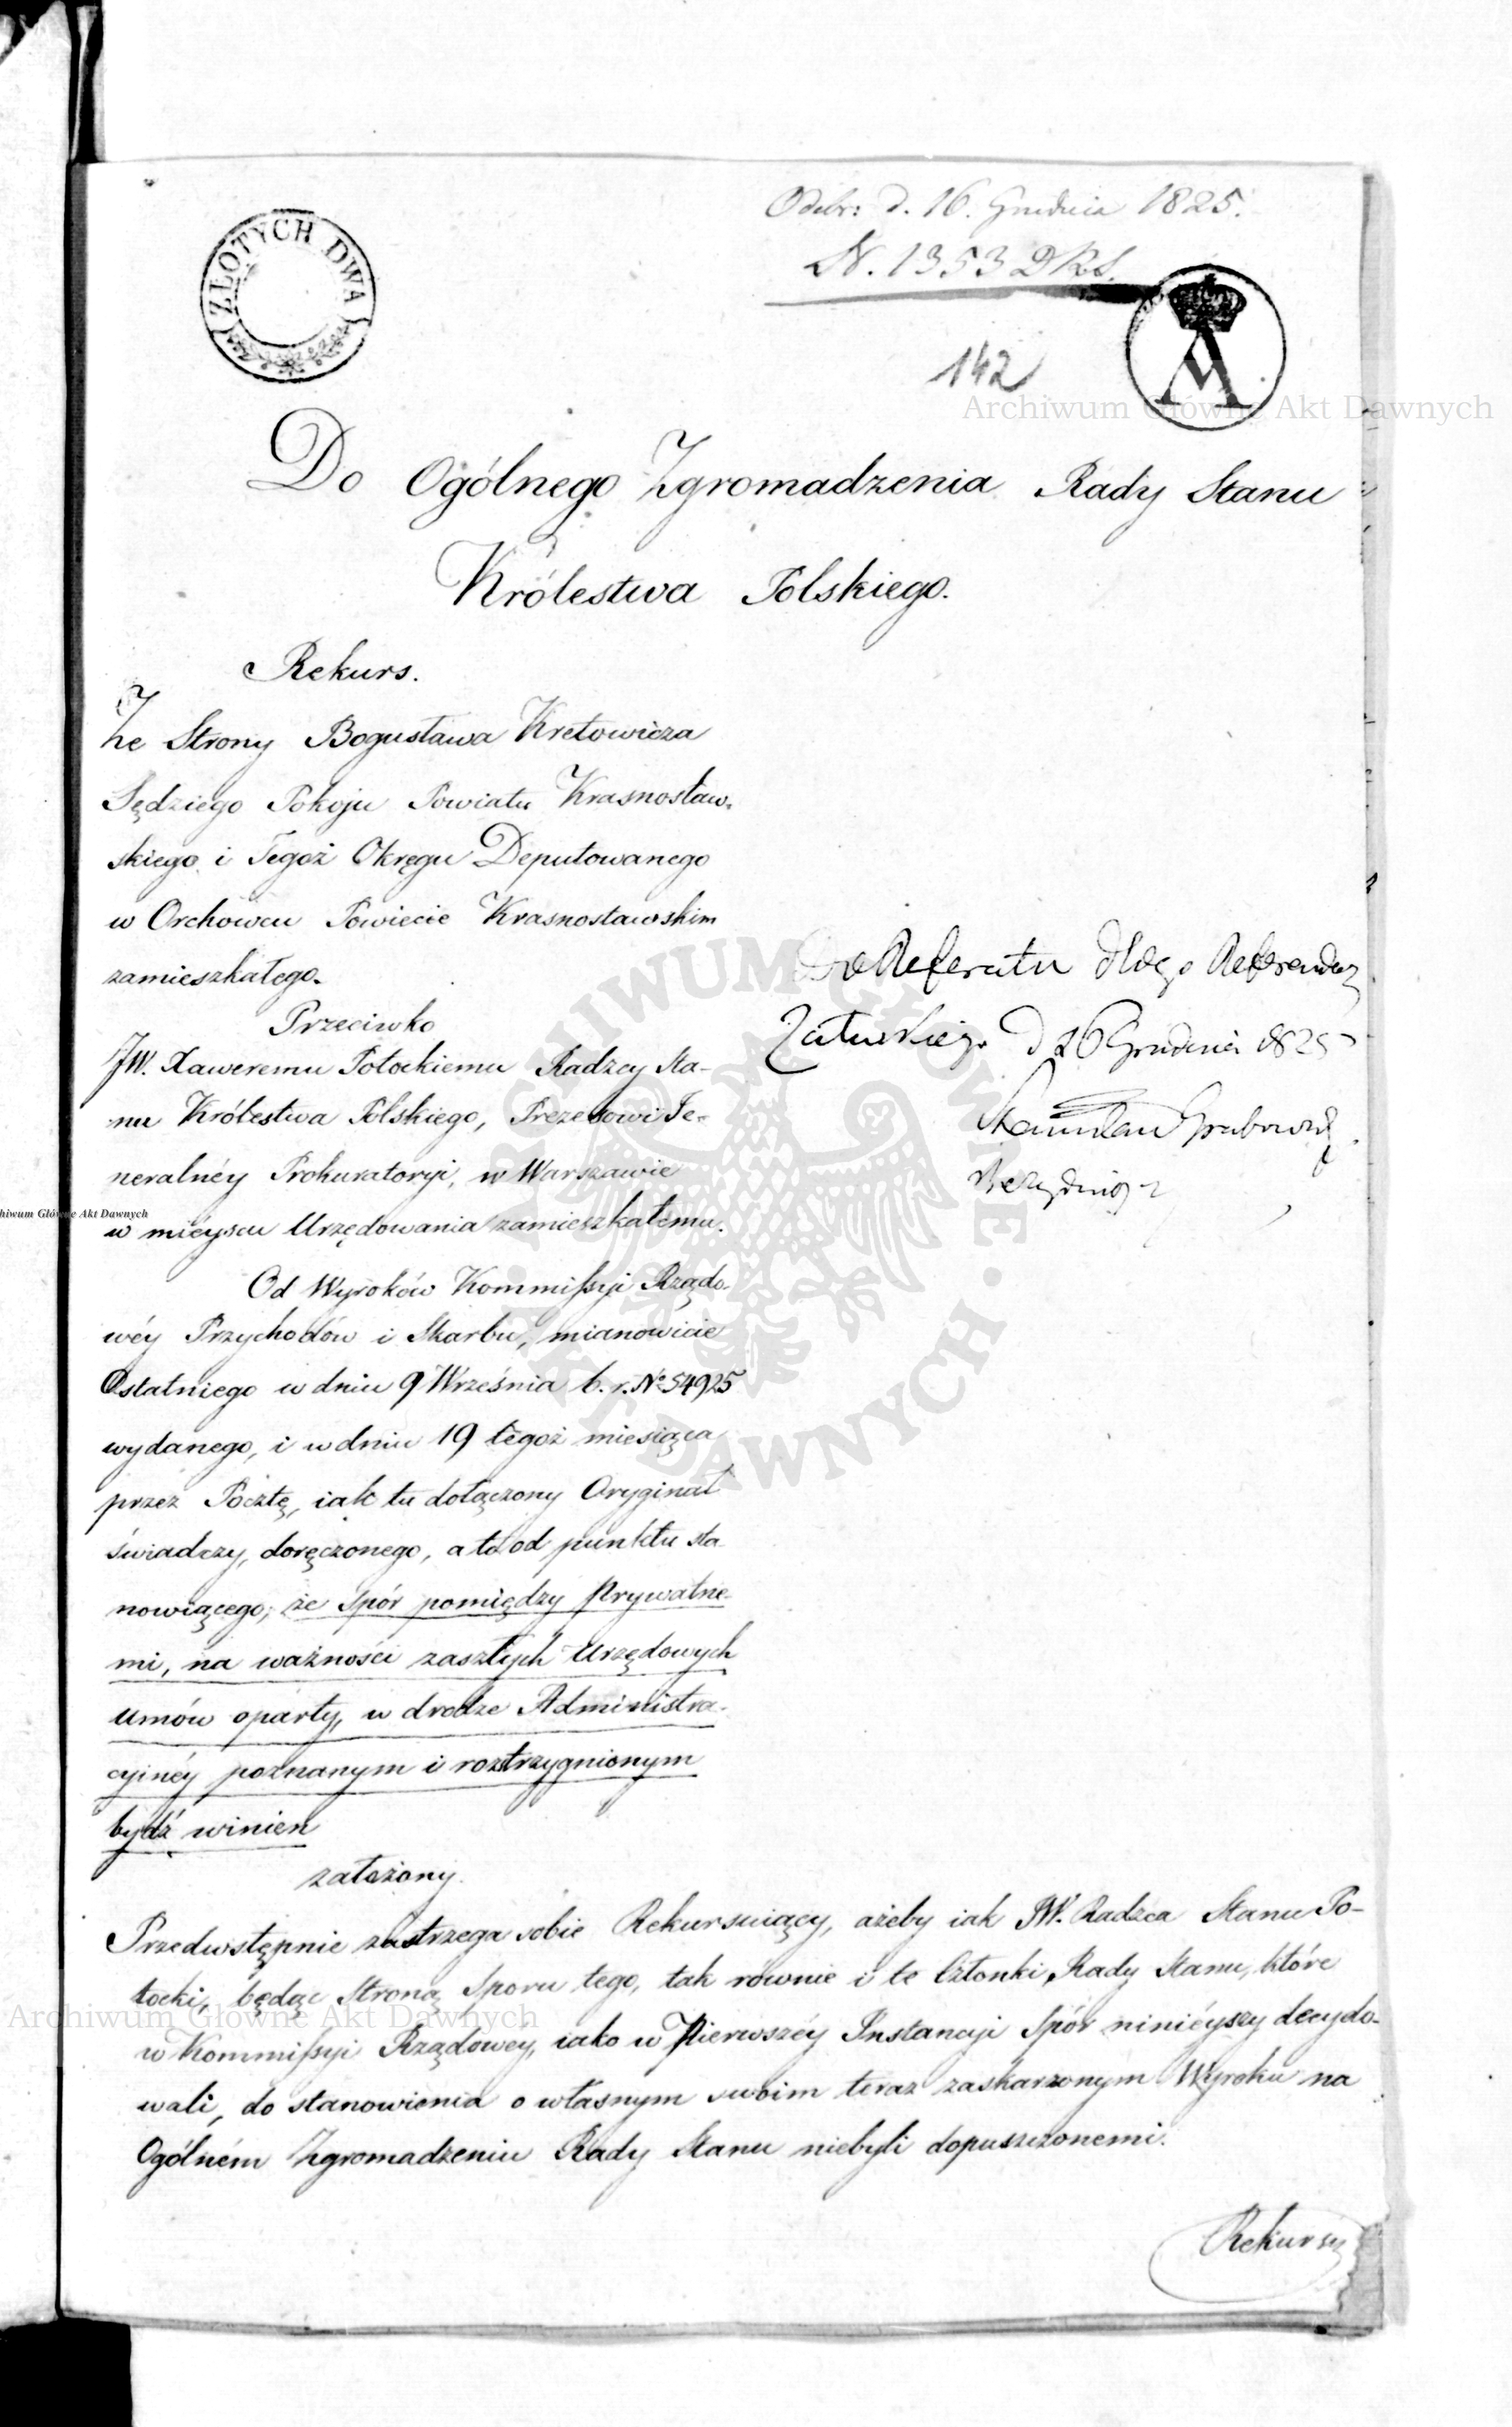 Odebr: d. 16. Grudnia 1825.
N. 1353 DRS.
ZŁOTYCH DWA
142
Archiwum Główne Akt Dawnych
Do Ogólnego Zgromadzenia Rady Stanu
Królestwa Polskiego.
Rekurs.
Ze Strony Bogusława Kretowicza
Sędziego Pokoju Powiatu Krasnostaw-
skiego i Tegoż Okręgu Deputowanego
w Orchowcu Powiecie Krasnostawskim
zamieszkałego.
Przeciwko
JW. Xaweremu Potockiemu Radzcy Sta-
nu Królestwa Polskiego, Prezesowi Je-
neralnéy Prokuratoryi, w Warszawie
w mieyscu Urzędowania zamieszkałemu.
Do Referatu Referendarz
Załuskiego d 16 Grudnia 1825
Stanisław Grabowski
Archiwum Główne Akt Dawnych
Od Wyroków Kommissyi Rządo-
wéy Przychodów i Skarbu, mianowicie
Ostatniego w dniu 9 Września b. r. No 54925
wydanego, i w dniu 19 tegoż miesiąca
przez Pocztę, iak tu dołączony Oryginał
świadczy, doręczonego, a to od punktu sta-
nowiącego; że Spór pomiędzy Prywatne-
mi, na ważności zaszłych Urzędowych
umów oparty, w drodze Administra-
cyinéy poznanym i rozstrzygnionym
bydź winien
założony.
Przedwstępnie zastrzega sobie Rekursuiący, ażeby iak JW. Radzca Stanu Po-
tocki, będąc Stroną Sporu tego, tak równie i te Członki Rady Stanu, które
w Kommissyi Rządowey, iako w Pierwszéy Instancyi Spór niniéyszy decydo-
wali, do stanowienia o własnym swoim teraz zaskarżonym Wyroku na
Ogólném Zgromadzeniu Rady Stanu niebyli dopuszczonemi.
Archiwum Główne Akt Dawnych
ARCHIWUM GŁÓWNE AKT DAWNYCH
Rekursu